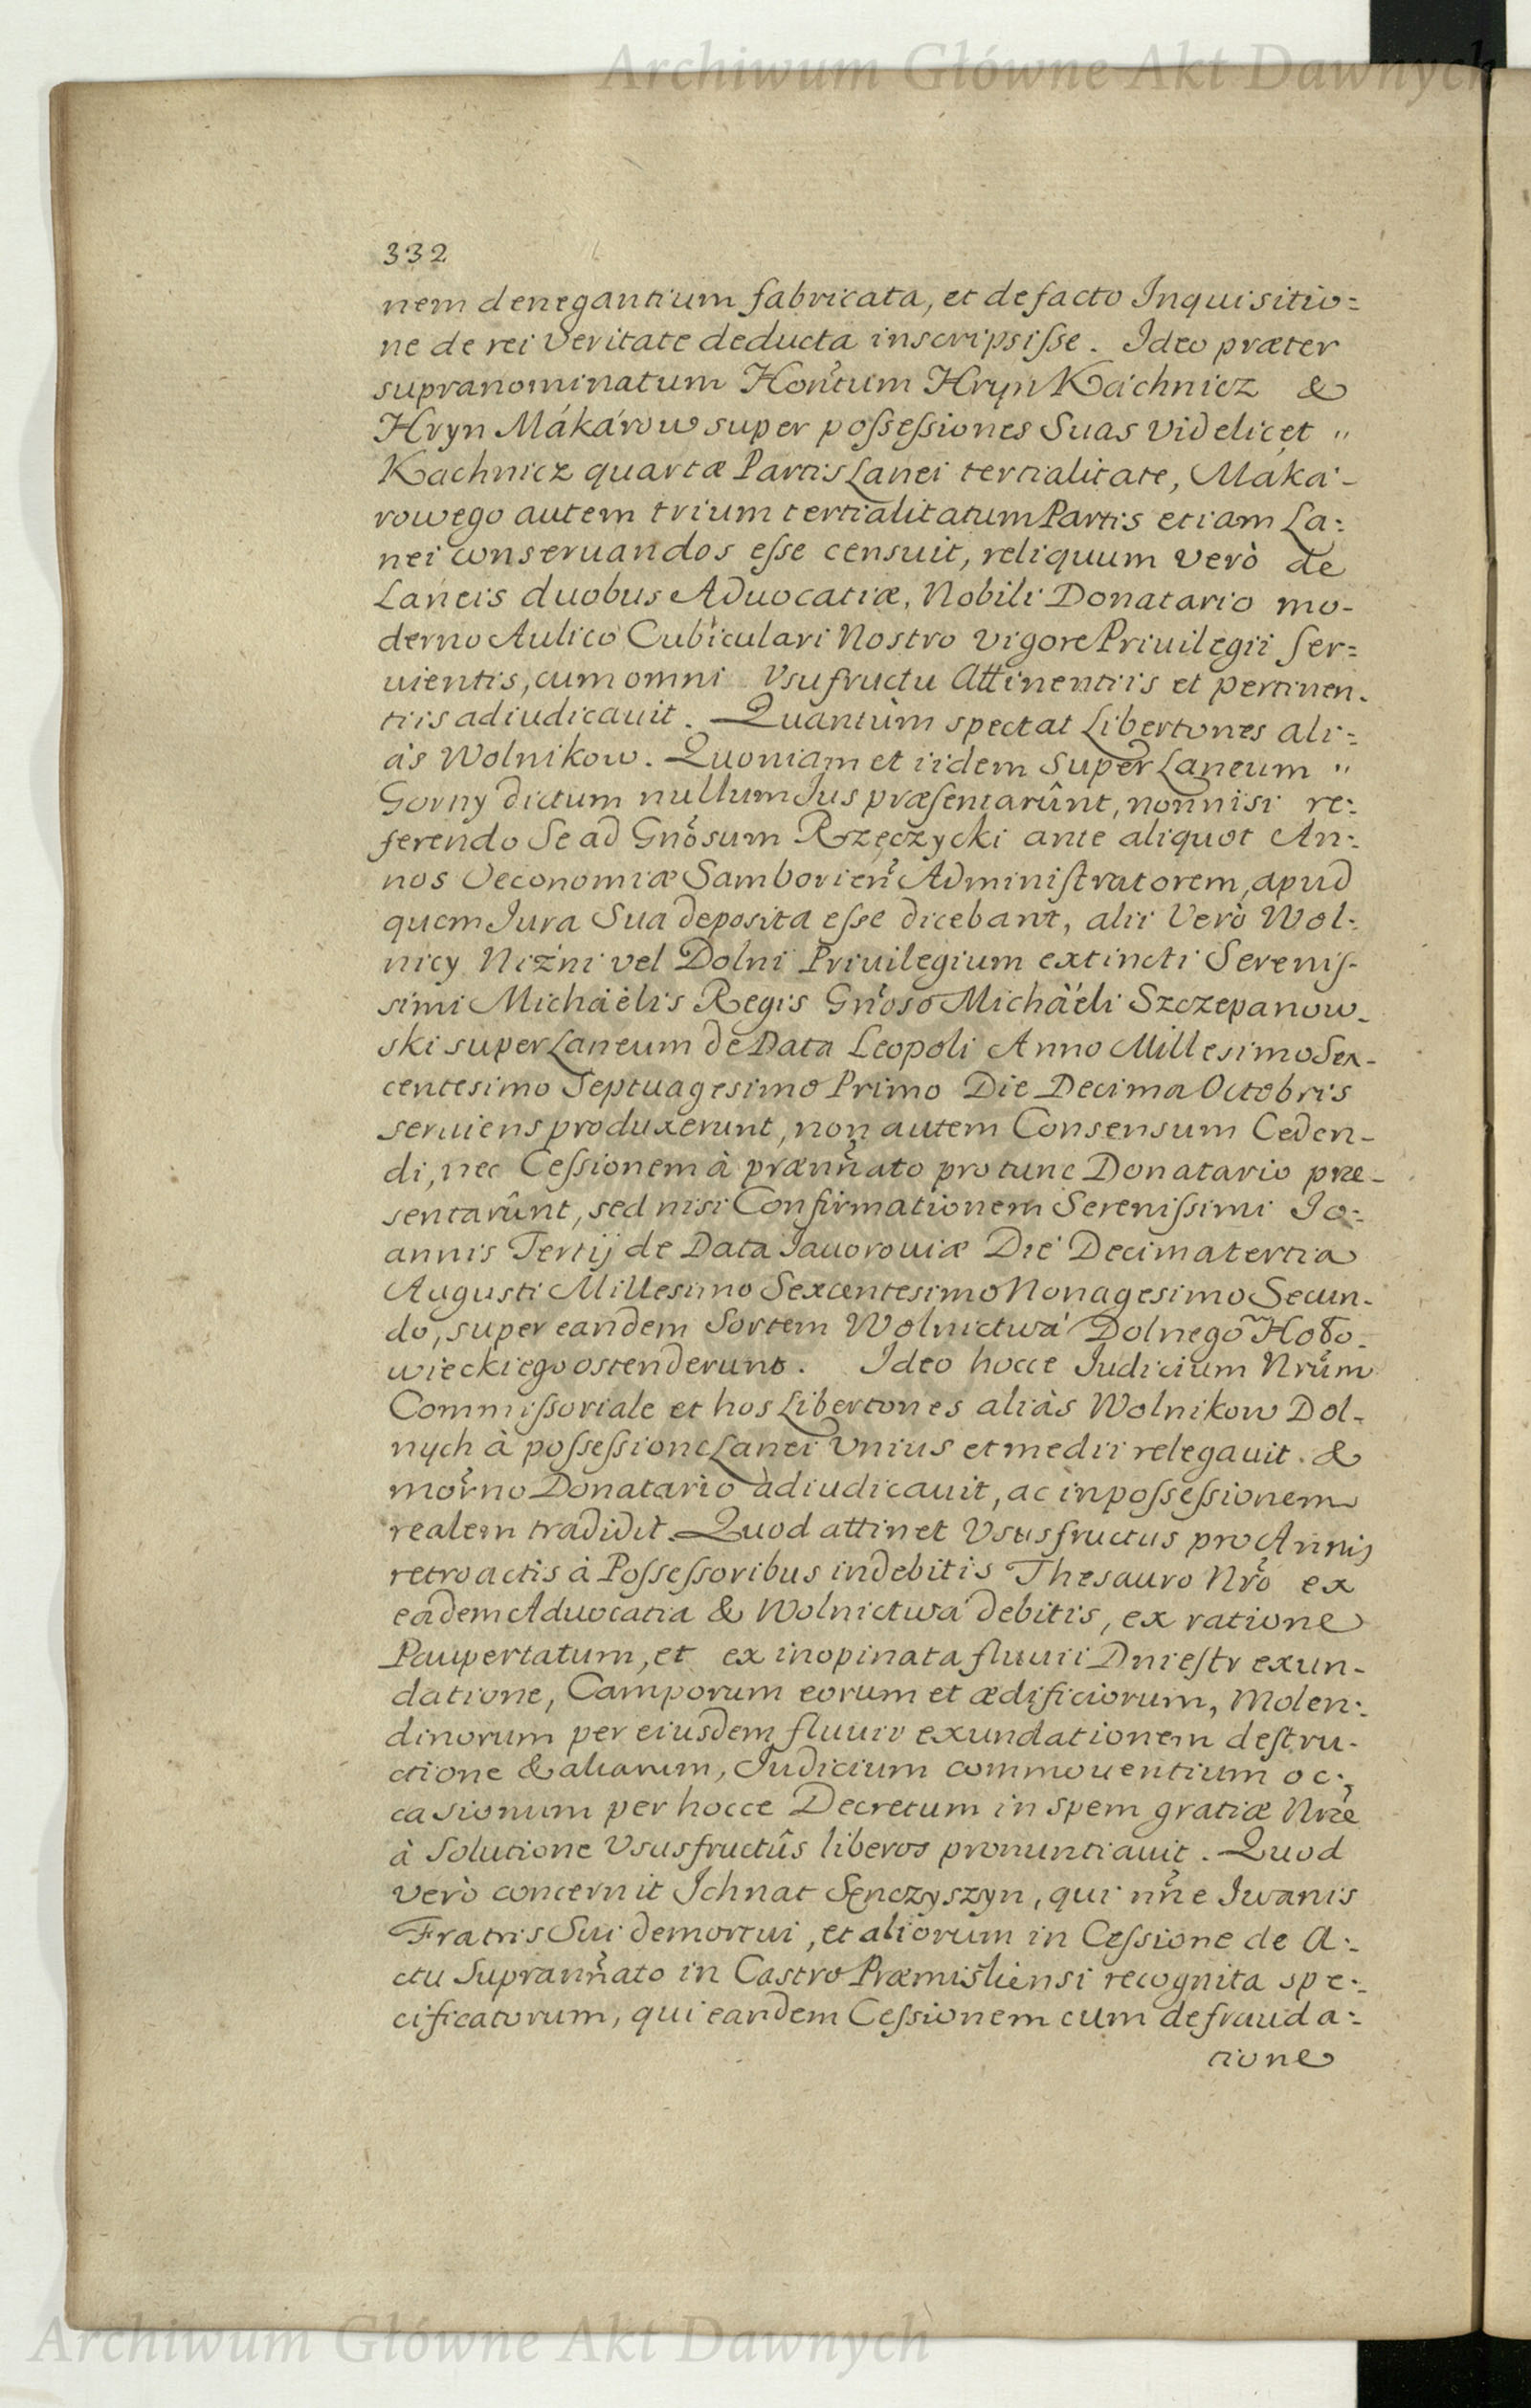 Archiwum Główne Akt Dawnych
332
nem denegantium fabricata, et de facto Inquisitio=
ne de rei veritate deducta inscripsisse. Ideo præter
supranominatum Hontum Hryn Káchnicz &
Hryn Mákárow super possessiones Suas videlicet "
Kachnicz quartæ Partis Lanei tertialitate, Máká-
rowego autem trium tertialitatum Partis etiam La:
nei conseruandos esse censuit, reliquum verò de
Laneis duobus Aduocatiæ, Nobili Donatario mo-
derno Aulico Cubiculari Nostro vigore Priuilegii ser=
uientis, cum omni Vsufructu Attinentiis et pertinen-
tiis adiudicauit. Quantùm spectat Libertones ali=
às Wolnikow. Quoniam et iidem super Laneum "
Gorny dictum nullum Jus præsentarûnt, nonnisi re:
ferendo Se ad Gnosum Rzęczycki ante aliquot An:
nos Oeconomiæ Samborien Administratorem, apud
quem Jura Sua deposita esse dicebant, alii Verò Wol:
nicy Niżni vel Dolni Priuilegium extincti Serenis-
simi Michäelis Regis Gnoso Michäeli Szczepanow-
ski super Laneum de Data Leopoli Anno Millesimo Sex-
centesimo Septuagesimo Primo Die Decima Octobris
seruiens produxerunt, non autem Consensum Ceden-
di, nec Cessionem à prænnato pro tunc Donatario præ-
sentarûnt, sed nisi Confirmationem Serenissimi Jo:
annis Tertij de Data Jauorouiæ Die Decimatertia
Augusti Millesimo Sexcentesimo Nonagesimo Secun-
do, super eandem Sortem Wolnictwá Dolnego Hodo-
wieckiego ostenderunt. Ideo hocce Judicium Nrum
Commissoriale et hos Libertones aliàs Wolnikow Dol-
nych à possessione Lanei Vnius et medii relegauit. &
morno Donatario àdiudicauit, ac in possessionem
realem tradidit. Quod attinet Vsusfructus pro Annis
retroactis à Possessoribus indebitis Thesauro Nro ex
eadem Aduocatia & Wolnictwá debitis, ex ratione
Paupertatum, et ex inopinata fluuii Dniestr exun-
datione, Camporum eorum et ædificiorum, Molen:
dinorum per eiusdem fluuii exundationem destru-
ctione & aliarum, Judicium commouentium oc:
casionum per hocce Decretum in spem gratiæ Nræ
à Solutione Vsusfructûs liberos pronuntiauit. Quod
verò concernit Jchnat Sęnczyszyn, qui nne Iwanis
Fratris Sui demortui, et aliorum in Cessione de A:
ctu Suprannato in Castro Præmisliensi recognita spe:
cificatorum, qui eandem Cessionem cum defrauda:
tione
Archiwum Główne Akt Dawnych